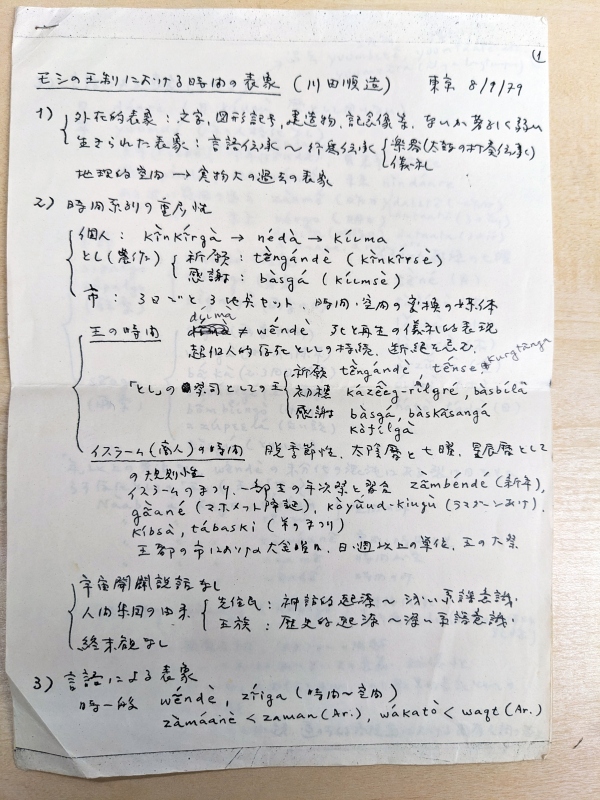 ①
モシの王制における時間の表象 (川田順造) 東京 8/9/79
1) 外在的表象:文字,図形記号,建造物,記念像等,ないか著しく弱い
生きられた表象:言語伝承〜行為伝承 楽器(太鼓の打奏伝承)
儀礼
地理的空間→実物大の過去の表象
2) 時間系列の重層性
個人: kĩnkírgà → nédà → kíima
とし(農作) 祈願: tèngándè (kĩnkírsè)
感謝: bàsgá (kíimsè)
市: 3日ごと,3比良セット. 時間・空間の変換の媒体
王の時間 dúːma ≠ wéndè 死と再生の儀礼的表現
超個人的存在としての持続,断絶を忌む.
「とし」の祭司としての王 祈願 tèngándè, ténse kurgtãnga
初穂 kázeeg-rĩlgré, bàsbílà
感謝 bàsgá, bàskãsangá
kòfílgà
イスラーム(商人)の時間 脱季節性,太陰暦と七曜,星辰暦として
の規則性
イスラームのまつり,一部王の年次祭と習合 zãmbéndé (新年),
gãané (マホメット降誕), kòyũud-kiugù (ラマダーンあけ),
kíbsà, tábaski (羊のまつり)
王都の市における大金曜日,日・週以上の単位,王の大祭
宇宙開闢説話なし
人間集団の由来 先住民:神話的起源〜浅い系譜意識.
王族:歴史的起源〜深い系譜意識.
終末観なし
3) 言語による表象
時一般 wéndè, zĩiga (時間〜空間)
zàmáanè < zaman (Ar.), wákatò < waqt (Ar.)